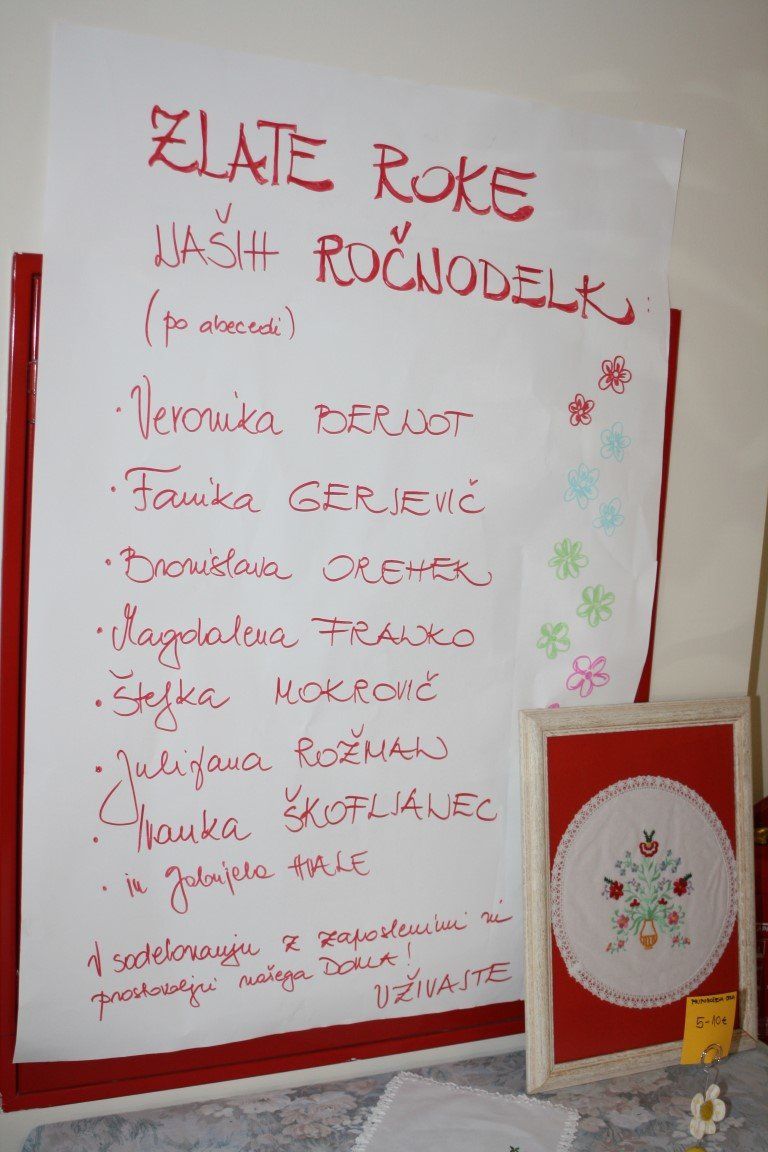 ZLATE ROKE
NAŠIH ROČNODELK:
(po abecedi)
· Veronika BERNOT
· Fanika GERJEVIČ
· Bronislava OREHEK
· Magdalena FRANKO
· Štefka MOKROVIČ
· Julijana ROŽMAN
· Ivanka ŠKOFLJANEC
· in Gabrijela HVALE
V sodelovanju z zaposlenimi in
prostovoljci našega DOMA!
UŽIVAJTE
5-10€